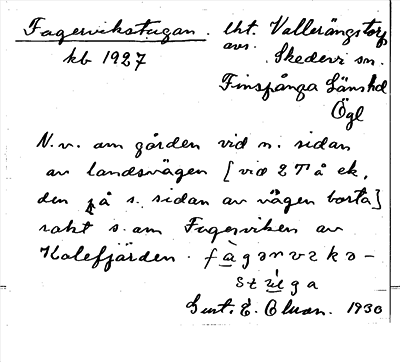 Fagervikstugan. lht. Vallerängstorp
kb 1927 avs. Skedevi sn.
Finspånga Länshd
Ögl
N.v. om gården vid n. sidan
av landsvägen [vid 2 T å ek.
den på s. sidan av vägen borta]
rakt s. om Fagerviken av
Kolefjärden. fàgǝrvɛkǝ-
stuga
Gust. E. 1930